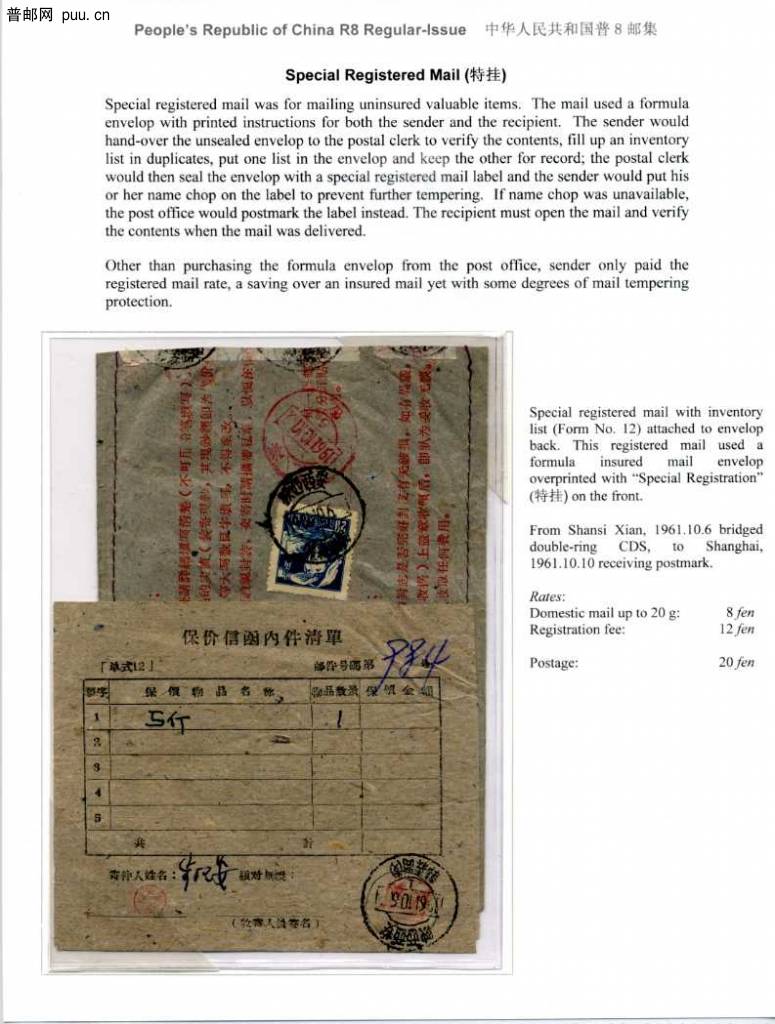 普邮网 puu.cn
People's Republic of China R8 Regular-Issue 中华人民共和国普8邮集
Special Registered Mail (特挂)
Special registered mail was for mailing uninsured valuable items. The mail used a formula
envelop with printed instructions for both the sender and the recipient. The sender would
hand-over the unsealed envelop to the postal clerk to verify the contents, fill up an inventory
list in duplicates, put one list in the envelop and keep the other for record; the postal clerk
would then seal the envelop with a special registered mail label and the sender would put his
or her name chop on the label to prevent further tempering. If name chop was unavailable,
the post office would postmark the label instead. The recipient must open the mail and verify
the contents when the mail was delivered.
Other than purchasing the formula envelop from the post office, sender only paid the
registered mail rate, a saving over an insured mail yet with some degrees of mail tempering
protection.
Special registered mail with inventory
list (Form No. 12) attached to envelop
back. This registered mail used a
formula insured mail envelop
overprinted with “Special Registration”
(特挂) on the front.
From Shansi Xian, 1961.10.6 bridged
double-ring CDS, to Shanghai,
1961.10.10 receiving postmark.
Rates:
Domestic mail up to 20 g: 8 fen
Registration fee: 12 fen
Postage: 20 fen
保价信函内件清單
「單式12」 郵件号碼第 984 号
號字 保價物品名称 物品数量 保價金額
1 1
2
3
4
5
共 計
寄件人姓名：
(收寄人員簽名)